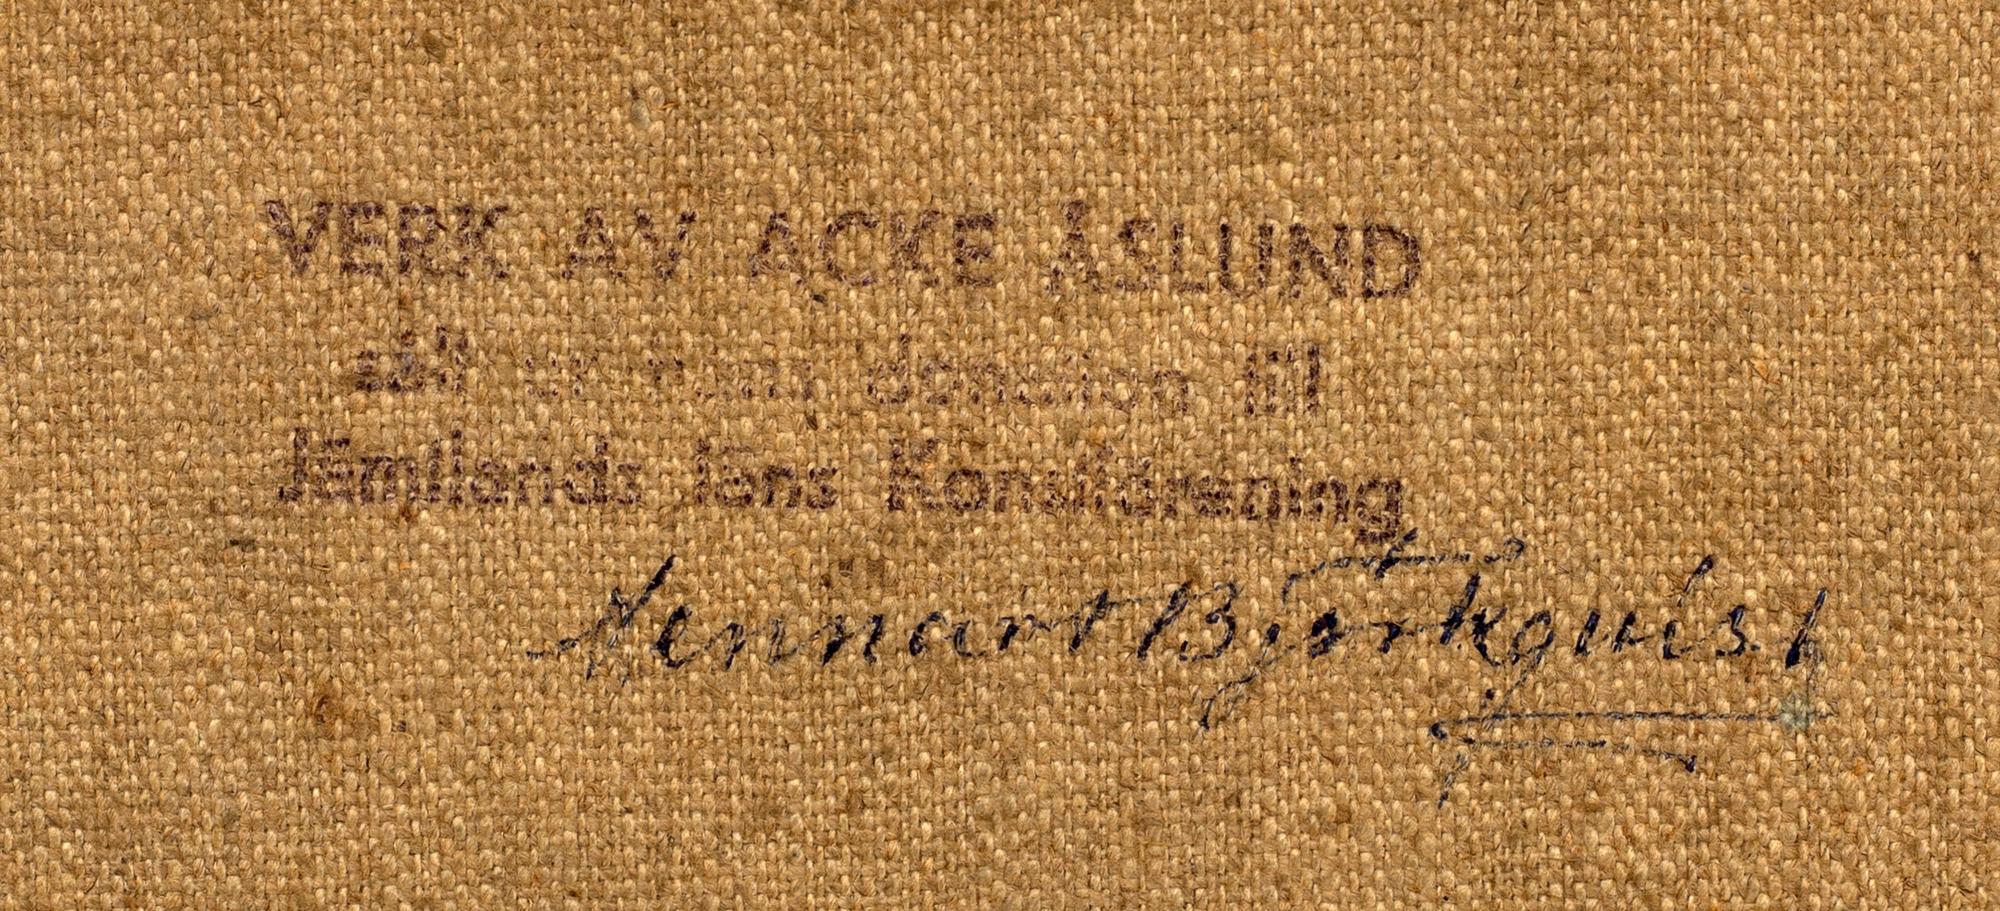 VERK AV ACKE ÅSLUND
donation till
Jämtlands läns Konstförening
Lennart Björkquist